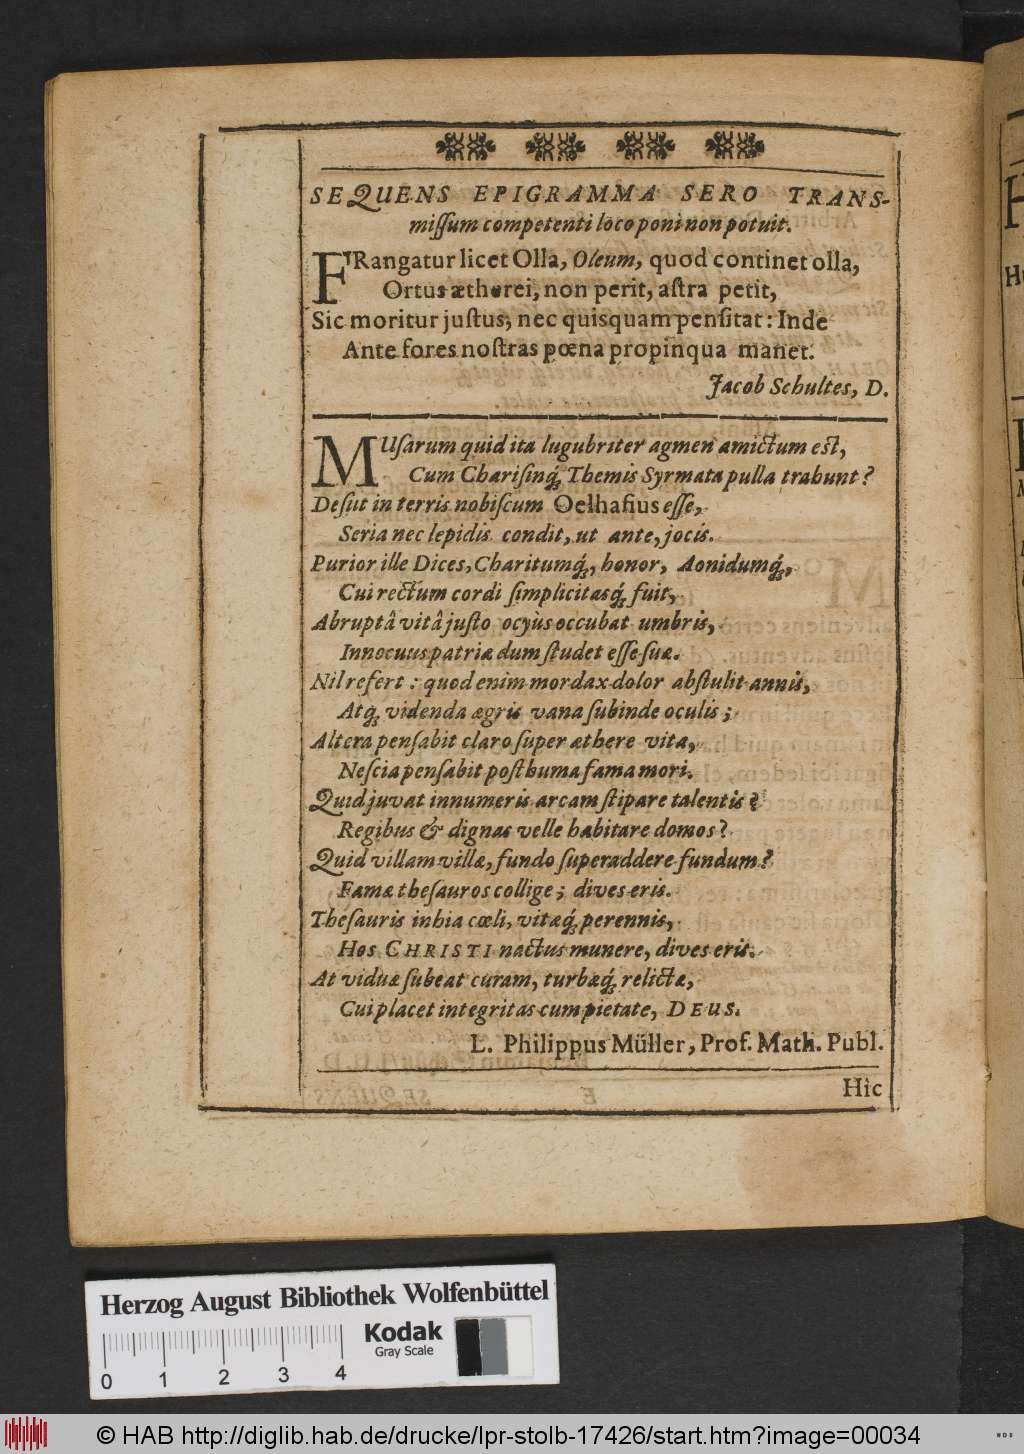 SEQUENS EPIGRAMMA SERO TRANS-
miſſum competenti loco poni non potuit.
FRangatur licet Olla, Oleum, quod continet olla,
Ortus ætherei, non perit, aſtra petit,
Sic moritur juſtus, nec quisquam penſitat: Inde
Ante fores noſtras pœna propinqua manet.
Jacob Schultes, D.
MUſarum quid ita lugubriter agmen amictum eſt,
Cum Chariſinq́; Themis Syrmata pulla trahunt?
Deſiit in terris nobiſcum Oelhafius eſſe,
Seria nec lepidis condit, ut ante, jocis.
Purior ille Dices, Charitumq́;, honor, Aonidumq́;,
Cui rectum cordi ſimplicitasq́; fuit,
Abruptâ vitâ juſto ocyùs occubat umbris,
Innocuus patriæ dum ſtudet eſſe ſuæ.
Nil refert: quod enim mordax dolor abſtulit annis,
Atq́; videnda ægris vana ſubinde oculis;
Altera penſabit claro ſuper æthere vita,
Neſcia penſabit poſthuma fama mori.
Quid juvat innumeris arcam ſtipare talentis?
Regibus & dignas velle habitare domos?
Quid villam villæ, fundo ſuperaddere fundum?
Famæ theſauros collige; dives eris.
Theſauris inhia cœli, vitæq́; perennis,
Hos CHRISTI nactus munere, dives eris.
At viduæ ſubeat curam, turbæq́; relictæ,
Cui placet integritas cum pietate, DEUS.
L. Philippus Müller, Prof. Math. Publ.
Hic
Herzog August Bibliothek Wolfenbüttel
Kodak
Gray Scale
0 1 2 3 4
© HAB http://diglib.hab.de/drucke/lpr-stolb-17426/start.htm?image=00034